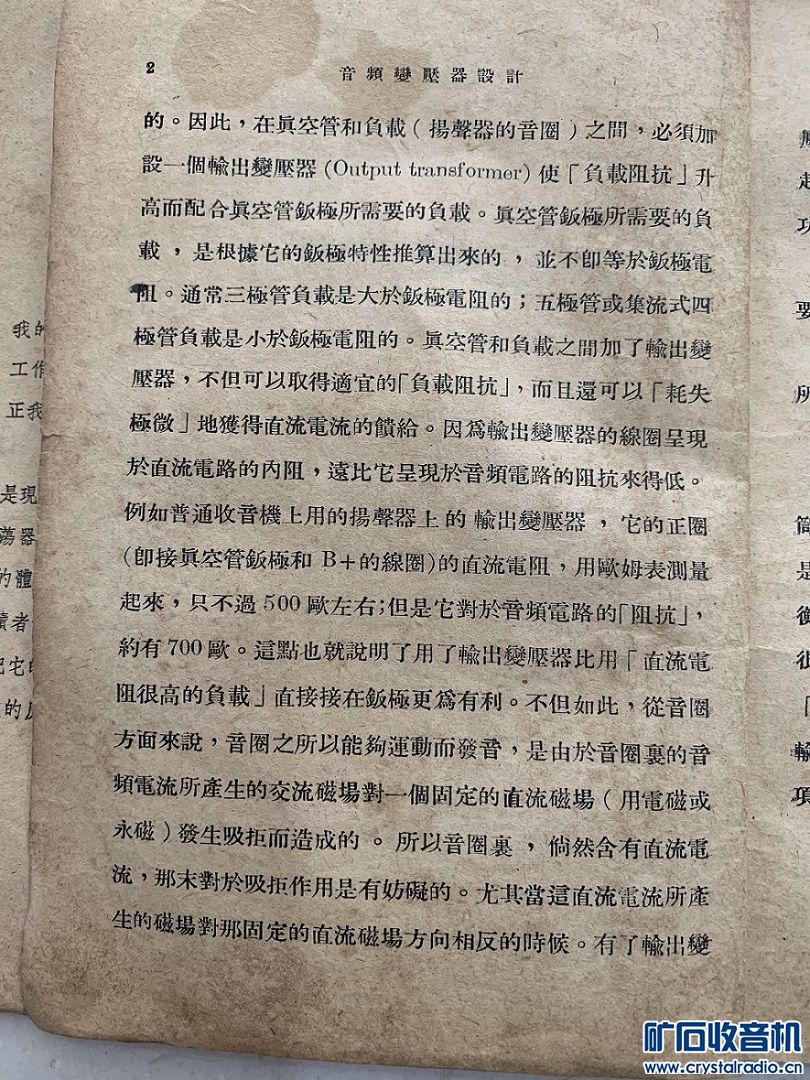 2
音頻變壓器設計
的。因此，在眞空管和負載（揚聲器的音圈）之間，必須加
設一個輸出變壓器(Output transformer)使「負載阻抗」升
高而配合眞空管鈑極所需要的負載。眞空管鈑極所需要的負
載，是根據它的鈑極特性推算出來的，並不卽等於鈑極電
阻。通常三極管負載是大於鈑極電阻的；五極管或集流式四
極管負載是小於鈑極電阻的。眞空管和負載之間加了輸出變
壓器，不但可以取得適宜的「負載阻抗」，而且還可以「耗失
極微」地獲得直流電流的饋給。因爲輸出變壓器的線圈呈現
於直流電路的內阻，遠比它呈現於音頻電路的阻抗來得低。
例如普通收音機上用的揚聲器上的輸出變壓器，它的正圈
(卽接眞空管鈑極和 B+的線圈)的直流電阻，用歐姆表測量
起來，只不過 500 歐左右；但是它對於音頻電路的「阻抗」，
約有 700 歐。這點也就說明了用了輸出變壓器比用「直流電
阻很高的負載」直接接在鈑極更爲有利。不但如此，從音圈
方面來說，音圈之所以能夠運動而發音，是由於音圈裏的音
頻電流所產生的交流磁場對一個固定的直流磁場（用電磁或
永磁）發生吸拒而造成的。所以音圈裏，倘然含有直流電
流，那末對於吸拒作用是有妨礙的。尤其當這直流電流所產
生的磁場對那固定的直流磁場方向相反的時候。有了輸出變
我的
工作
正我
是現
蕩器
的體
讀者
把它的
的
起
功
要
所
筒
是
衡
很
「
輸
項
矿石收音机
www.crystalradio.cn